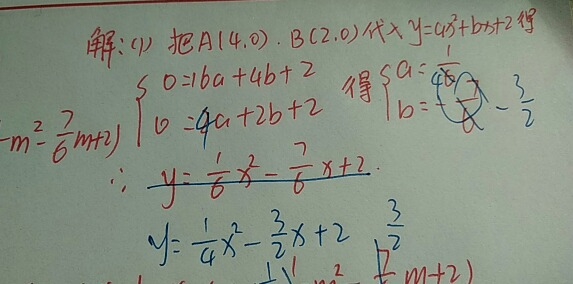 解:(1) 把A(4,0).B(2,0)代入y=ax²+bx+2得
{0=16a+4b+2 得{a=1/4
0=4a+2b+2 b=-3/2
-m²-7/6m+2)
∴ y=1/6x²-7/6x+2.
y=1/4x²-3/2x+2 3/2
m² m+2)